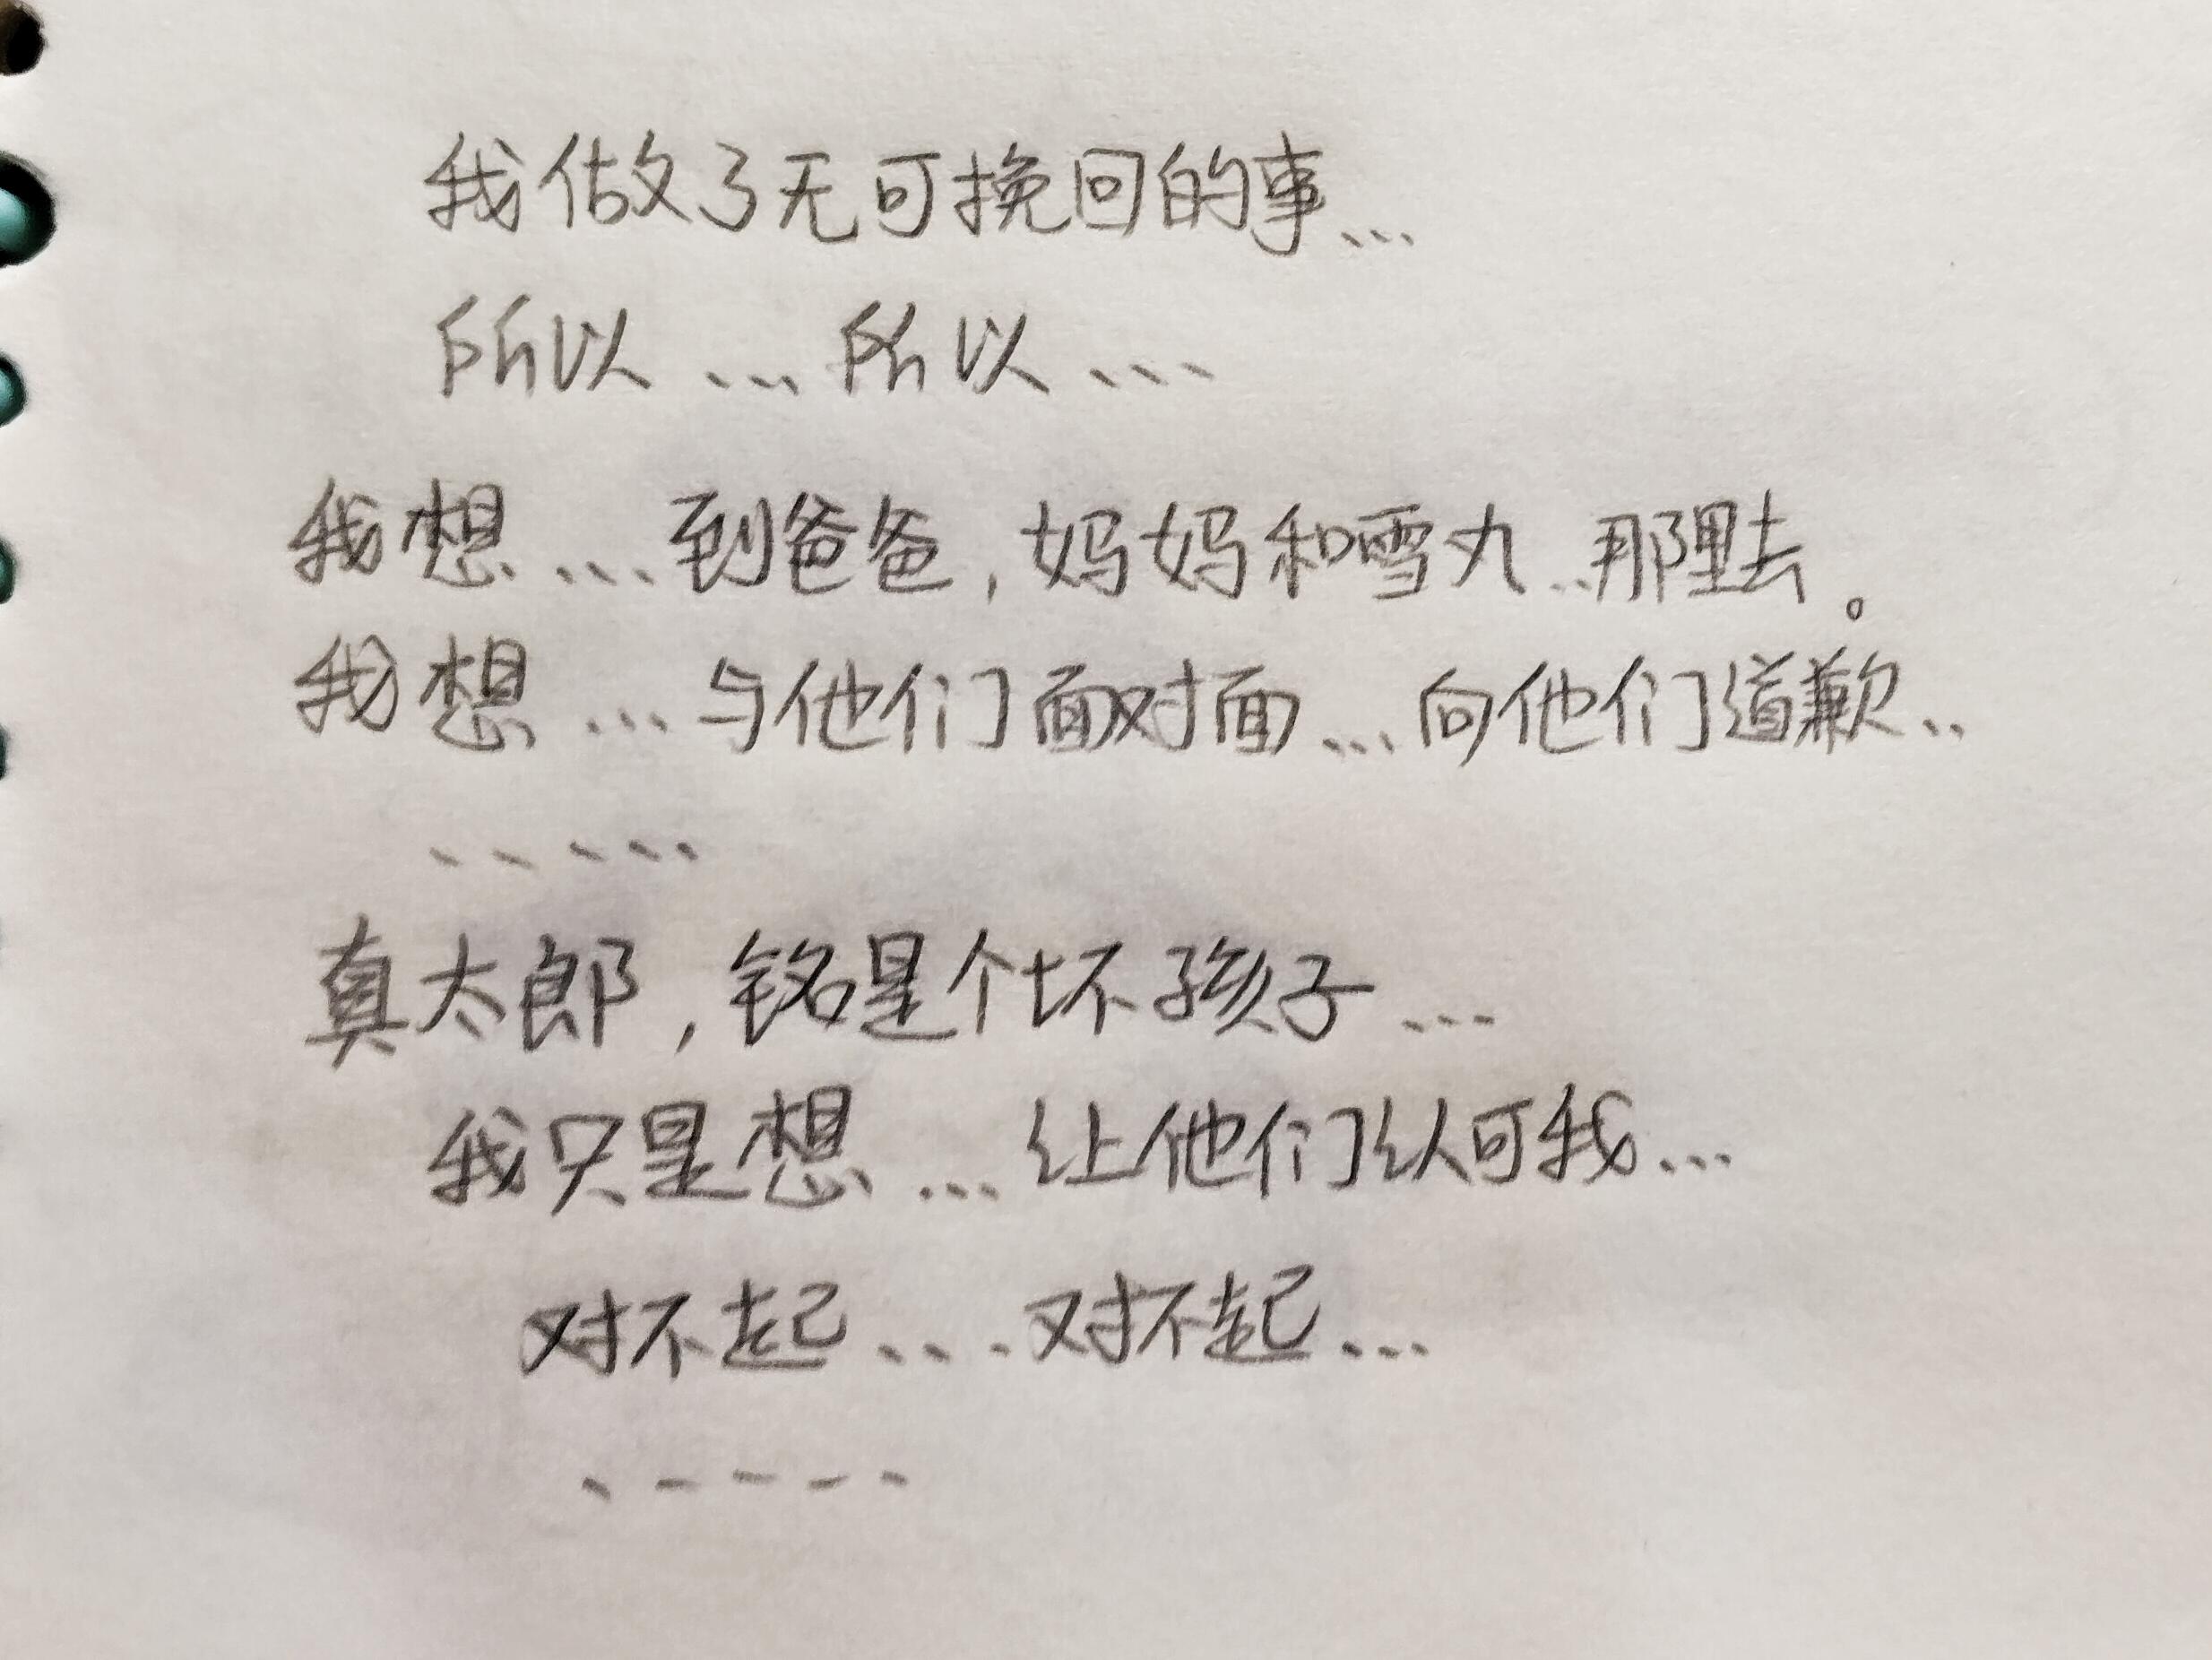 我做了无可挽回的事...
所以...所以...
我想...到爸爸,妈妈和雪丸...那里去。
我想...与他们面对面...向他们道歉..
.....
真太郎,铭是个坏孩子...
我只是想...让他们认可我...
对不起...对不起...
.....